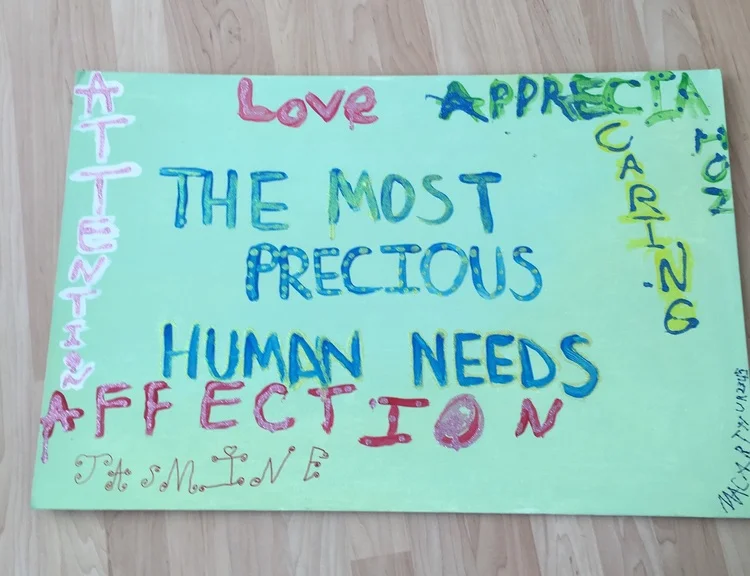 ATTENTION
LOVE
APPRECIATION
CARING
THE MOST
PRECIOUS
HUMAN NEEDS
AFFECTION
JASMINE